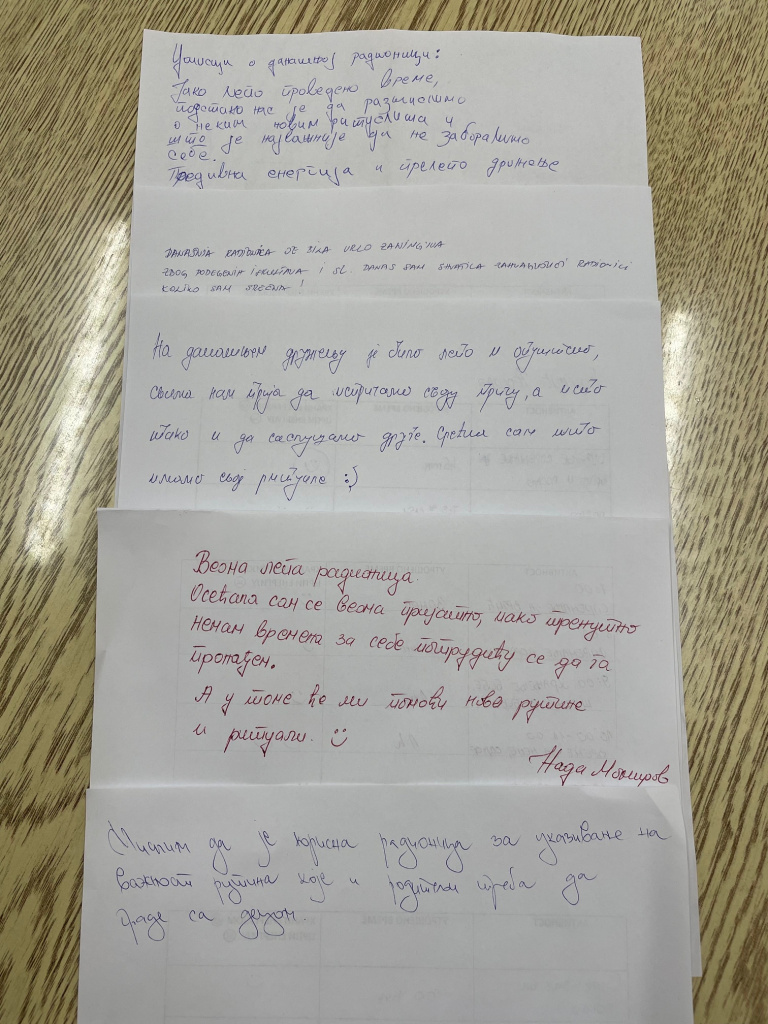 Утисци о данашњој радионици:
Јако лепо проведено време,
подстакло нас је да размислимо
о неким новим ритуалима и
што је најважније да не заборавимо
себе.
Предивна енергија и прелепо дружење
DANAŠNJA RADIONICA JE BILA VRLO ZANIMLJIVA
ZBOG PODELJENIH ISKUSTAVA I SL. DANAS SAM SHVATILA ZAHVALJUJUĆI RADIONICI
KOLIKO SAM SREĆNA!
На данашњем дружењу је било лепо и опуштено,
свима нам прија да испричамо своју причу, а исто
тако и да саслушамо друге. Срећна сам што
имамо своје ритуале :)
Веома лепа радионица.
Осећала сам се веома пријатно, иако тренутно
немам времена за себе потрудићу се да га
пронађем.
А у томе ће ми помоћи нове рутине
и ритуали.
Нада
Мислим да је корисна радионица за указивање на
важност рутина које и родитељи треба да
граде са децом.